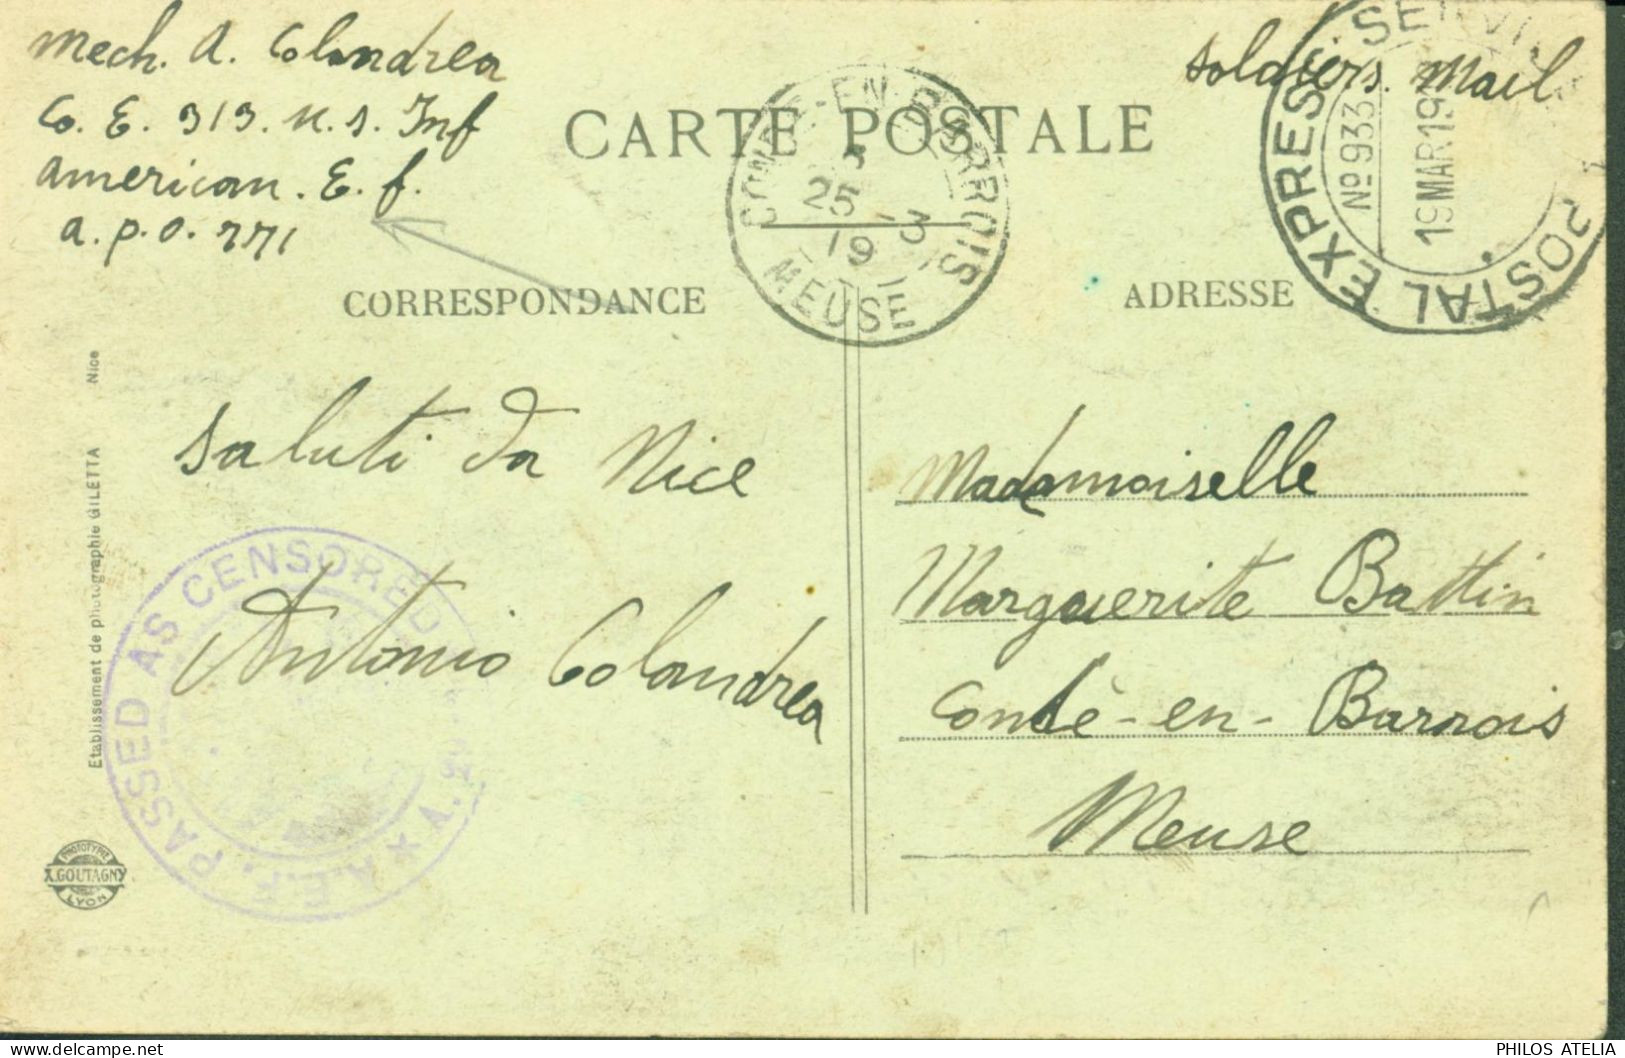 Mech. A. Colandrea
Co. E. 313. U.S. Inf
American. E. f.
a.p.o. 771
Soldiers. Mail
CARTE POSTALE
CONDÉ-EN-BARROIS
25 -3
19
MEUSE
POSTAL EXPRESS SERVI
No 933
19 MAR 19
CORRESPONDANCE
ADRESSE
Saluti da Nice
Antonio Colandrea
Madamoiselle
Marguerite Battin
Condè-en-Barrois
Meuse
Etablissement de photographie GILETTA Nice
A.E.F. PASSED AS CENSORED
PHOTOTYPIE
X.GOUTAGNY
LYON
PHILOS ATELIA